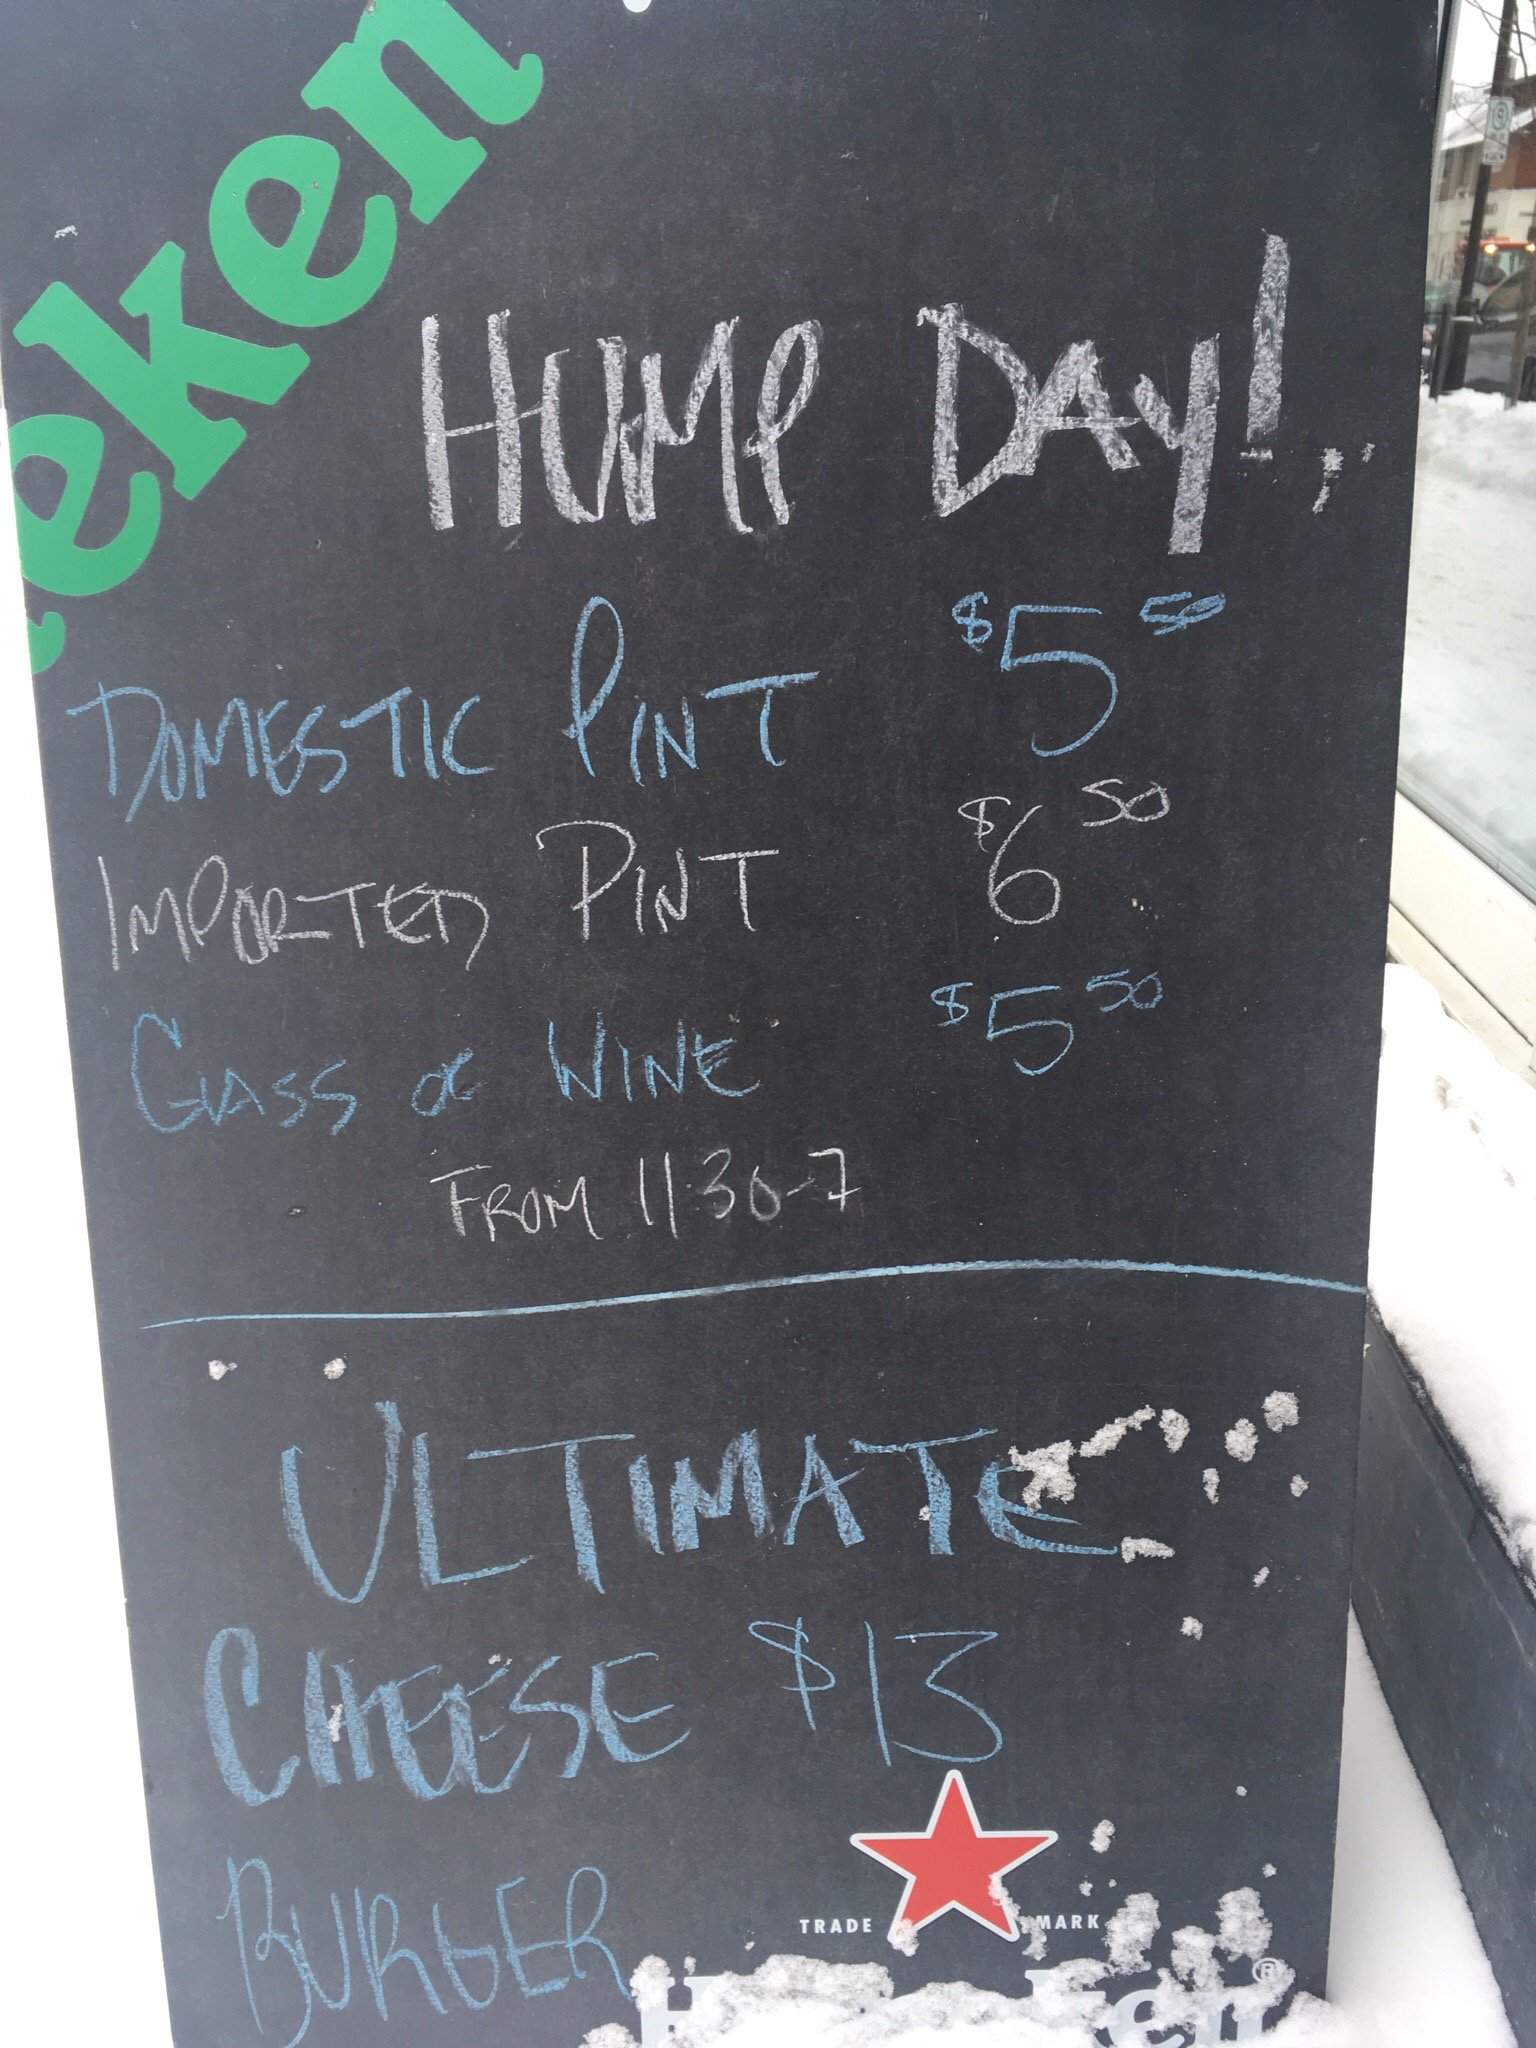 eken
HUMP DAY!
DOMESTIC PINT $5 50
IMPORTED PINT $6 50
GLASS OF WINE $5 50
FROM 11 30-7
ULTIMATE
CHEESE $13
BURGER
TRADE MARK